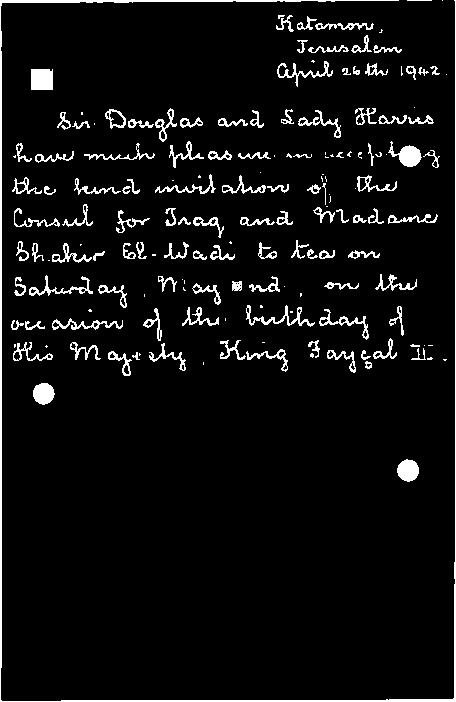 Katamon,
Jerusalem
April 26th 1942.
Sir Douglas and Lady Harris
have much pleasure in accepting
the kind invitation of the
Consul for Iraq and Madame
Shakir El-Wadi to tea on
Saturday, May nd, on the
occasion of the birthday of
His Majesty, King Fayçal II.